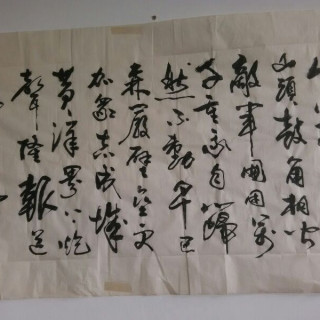 山頭鼓角相聞
敵軍圍困萬
千重我自巋
然不動早已
森嚴壁壘更
加衆志成城
黄洋界上炮
聲隆報道